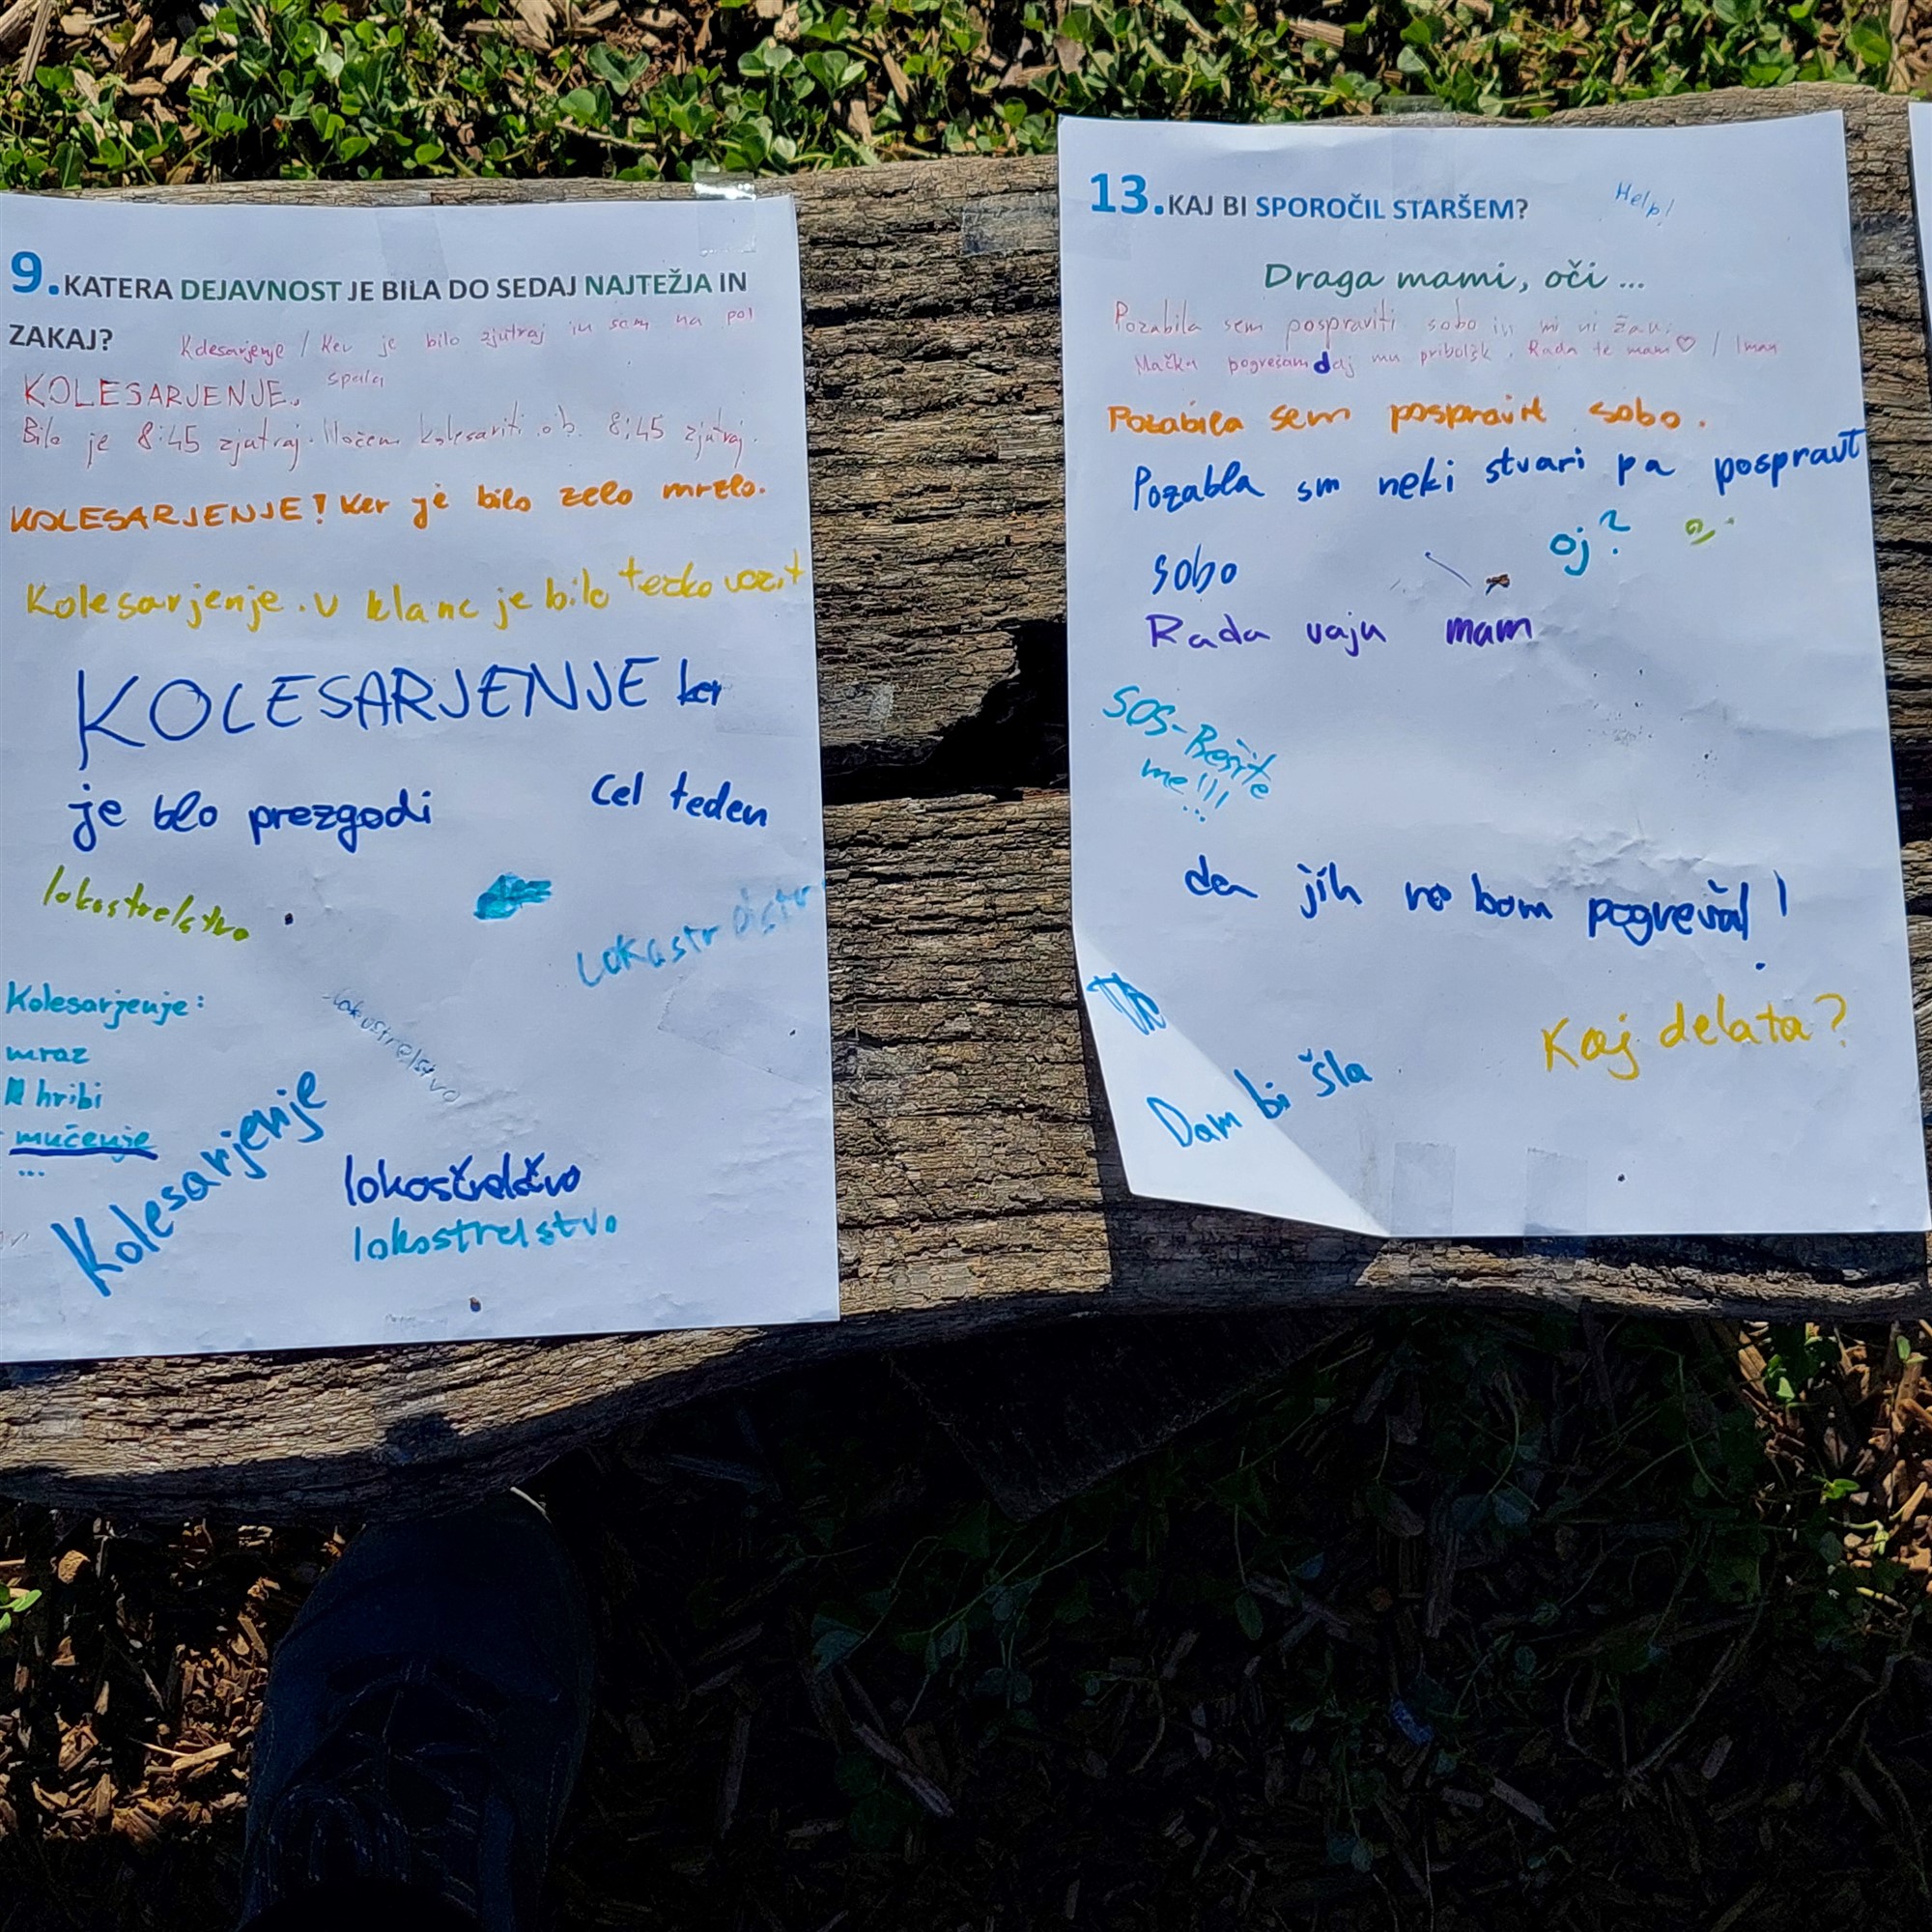 9. KATERA DEJAVNOST JE BILA DO SEDAJ NAJTEŽJA IN
ZAKAJ?
Kolesarjenje / Ker je bilo zjutraj in sem na pol
spala
KOLESARJENJE.
Bilo je 8:45 zjutraj. Nočem kolesariti ob 8:45 zjutraj.
KOLESARJENJE! Ker je bilo zelo mrzlo.
Kolesarjenje. V klanc je bilo težko vozit
KOLESARJENJE ker
je blo prezgodi
cel teden
lokostrelstvo
Kolesarjenje:
mraz
hribi
mučenje
...
lokostrelstvo
Kolesarjenje
lokostrelstvo
13. KAJ BI SPOROČIL STARŠEM?
Help!
Draga mami, oči ...
Pozabila sem pospraviti sobo in mi ni žau.
Mačka pogrešam daj mu priboljšk. Rada te mam ♡ /
Pozabila sem pospravit sobo.
Pozabla sm neki stvari pa pospravt
sobo
oj?
Rada vaju mam
SOS-Rešite
me!!!
da jih ne bom pogrešal!
Kaj delata?
Dam bi šla